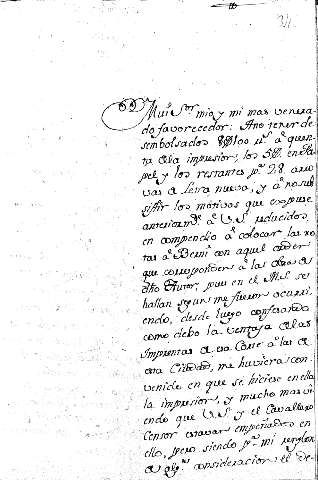 34.
Mui Sor. mio, y mi mas venera-
do favorecedor: A no tener de-
sembolsados ps. a quen-
ta de la impresion, los en Pa-
pel, y los restantes pa. 28. arro-
vas de letra nueva, y a no sub-
sistir los motivos que expuse
anteriormte. a V.S. reducidos
en compendio a colocar las no-
tas de con aquel orden
que corresponden a las obras de
dho Autor, pues en el M.S. se
hallan segun me fueron ocurri-
endo, desde luego confesando
como debo la ventaja de las
Imprentas de esa Corte a las de
esta Ciudad, me huviera con-
venido en que se hiciese en ella
la impresion, y mucho mas vi-
endo que V.S. y el Cavallero
Censor estavan empeñados en
ello, pero siendo pa. mi
de alga. consideracion el de-